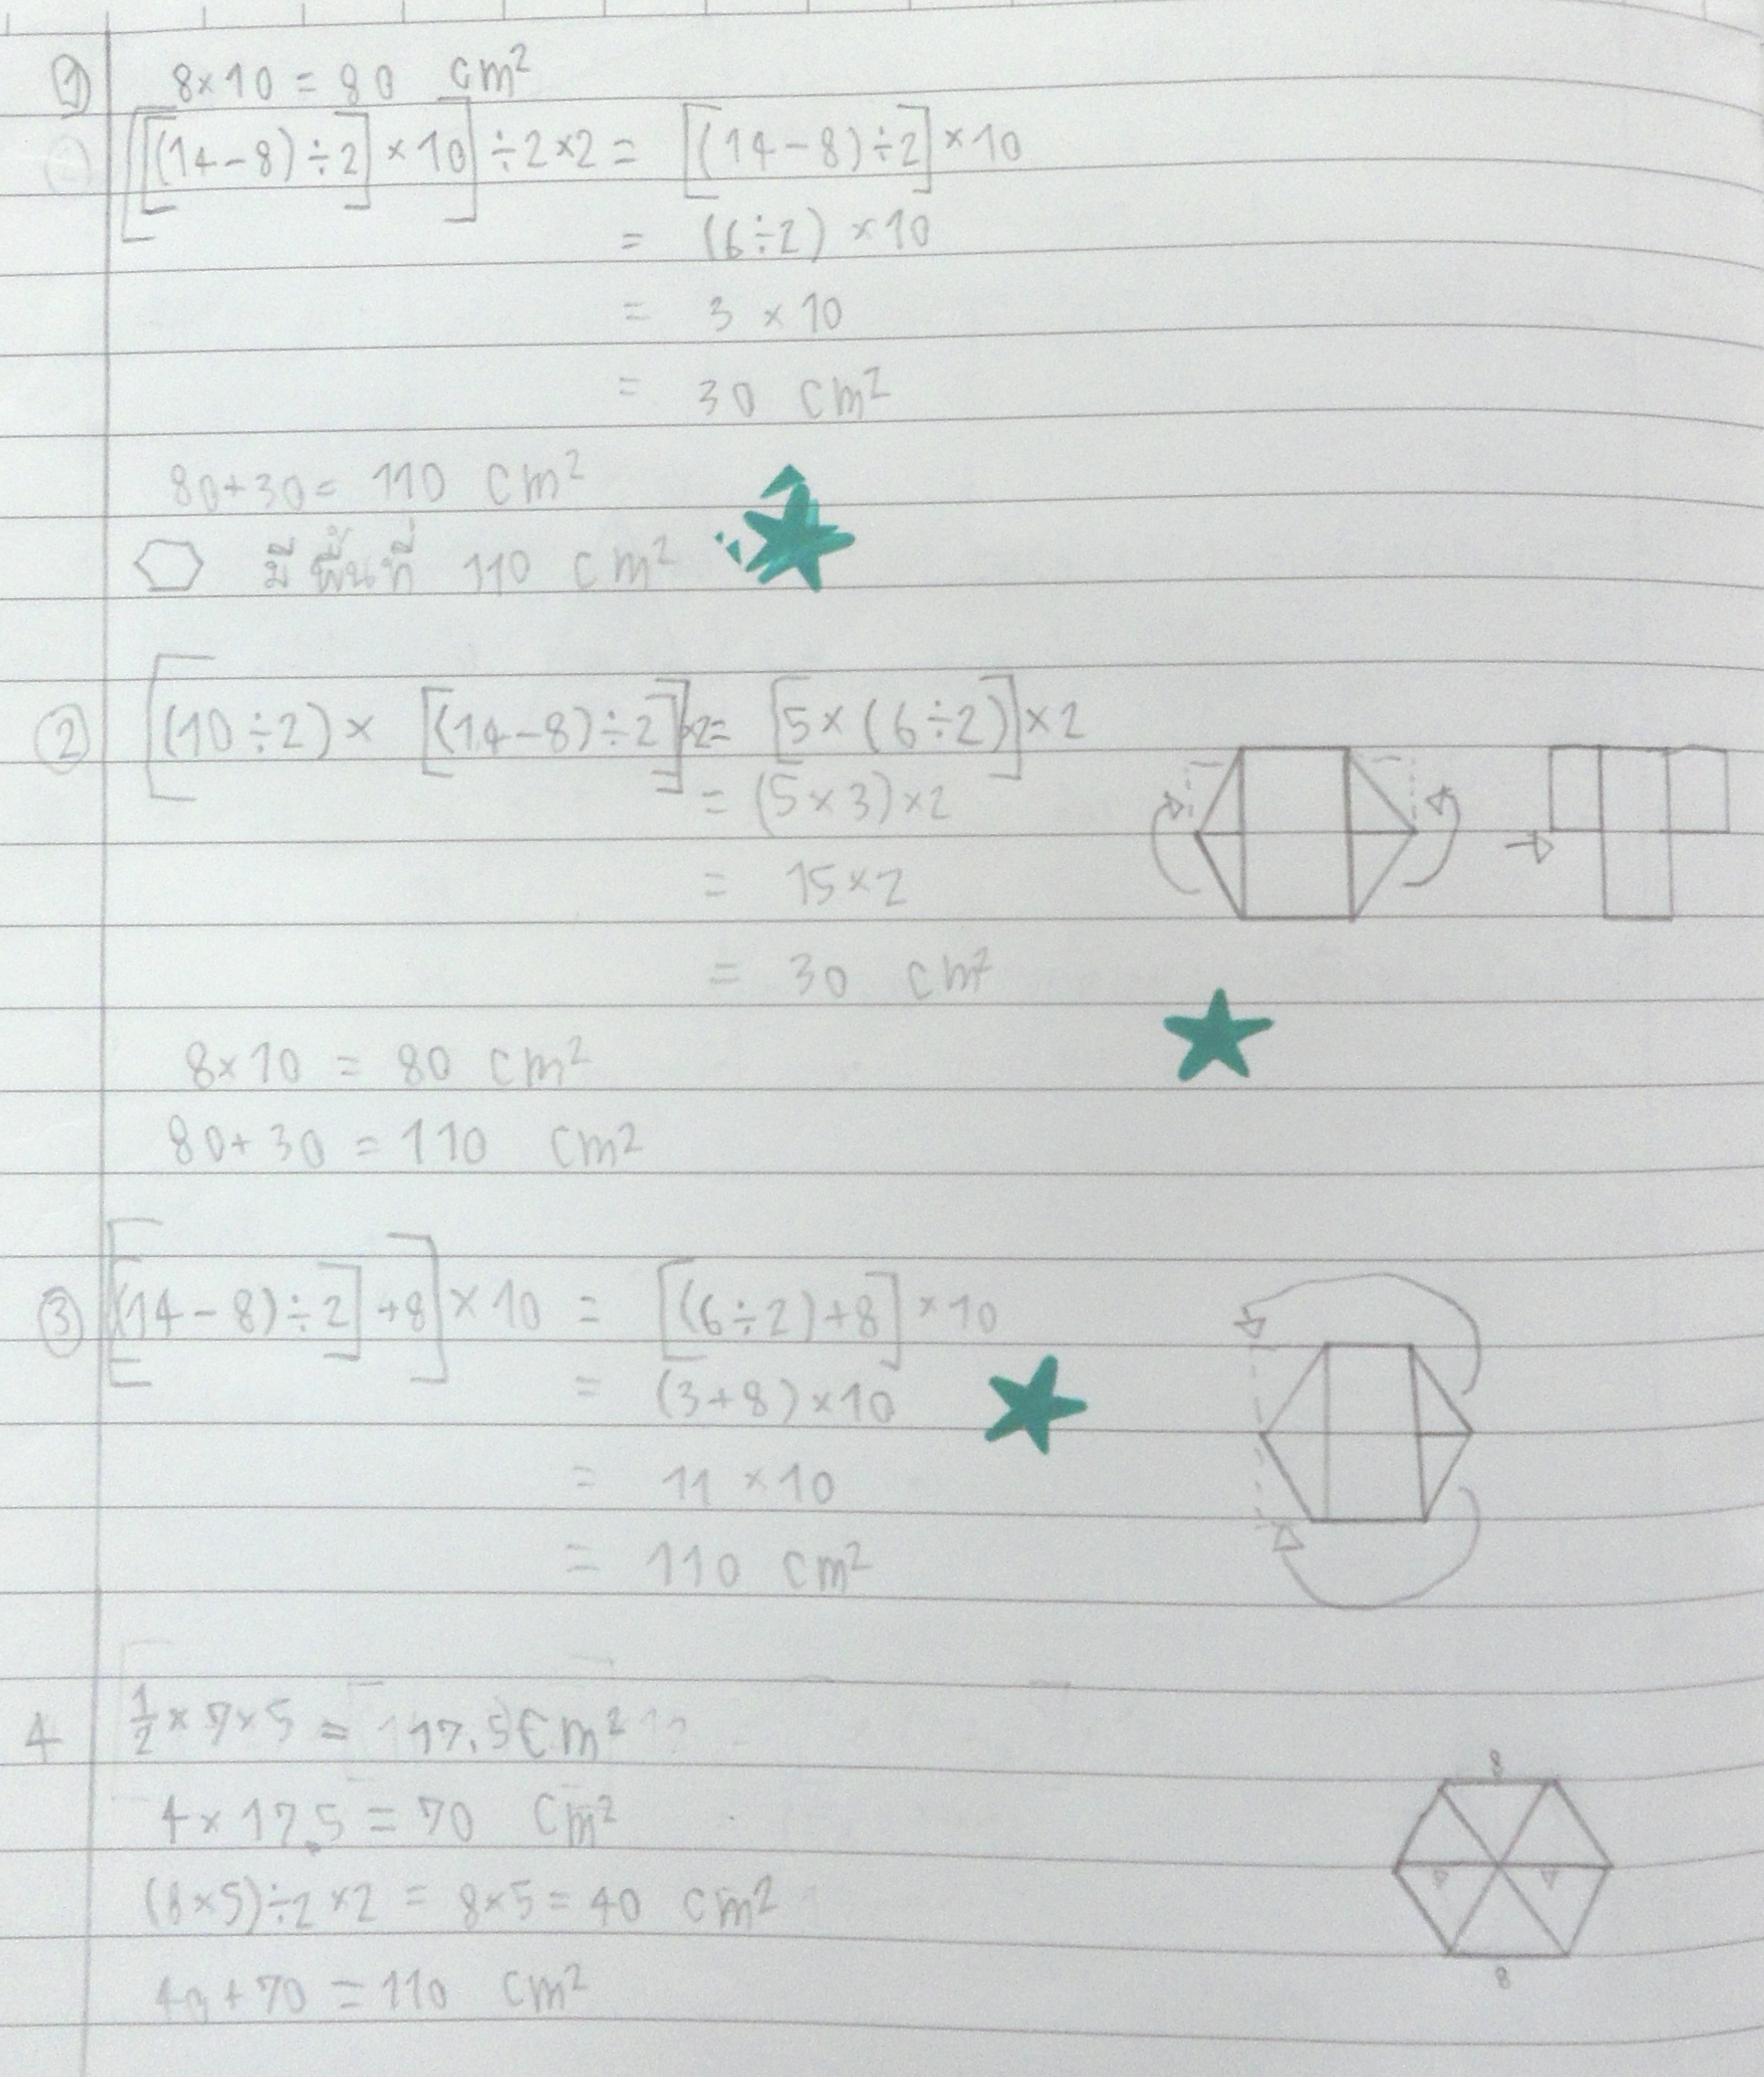 ① 8×10 = 80 cm²
[[(14-8)÷2]×10]÷2×2 = [(14-8)÷2]×10
= (6÷2)×10
= 3×10
= 30 cm²
80+30= 110 cm²
มีพื้นที่ 110 cm²
② [(10÷2)× [(14-8)÷2]]×2= [5×(6÷2)]×2
= (5×3)×2
= 15×2
= 30 cm²
8×10 = 80 cm²
80+30 = 110 cm²
③ [[(14-8)÷2]+8]×10 = [(6÷2)+8]×10
= (3+8)×10
= 11×10
= 110 cm²
4 ½×7×5 = 17.5 cm²
4×17.5 = 70 cm²
(8×5)÷2×2 = 8×5 = 40 cm²
40+70 = 110 cm²
8
8